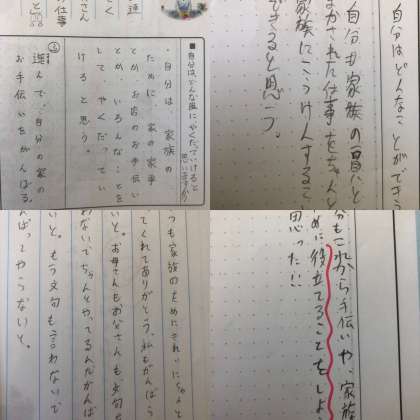 ■自分は、どんな風にやくだっていけると
思いますか
・自分は、家族の
ために家の家事
とか、お店のお手伝い
とか、いろんなことを
してやくだってい
けると思う。
進んで、自分の家の
お手伝いをがんばる。
自分はどんなことができ
自分も家族の一員と
まかされた仕事をちゃんと
家族にこうけんするこ
できると思う。
つも家族のためにきれいに
てくれてありがとう。私もがんばら
いと。お母さんもお父さんも文句
わないでちゃんとやってるんだがんば
いと。もう文句も言わないで
んばってやらないと。
分もこれから手伝いや、家族
めに役立てることをしよ
思った!!